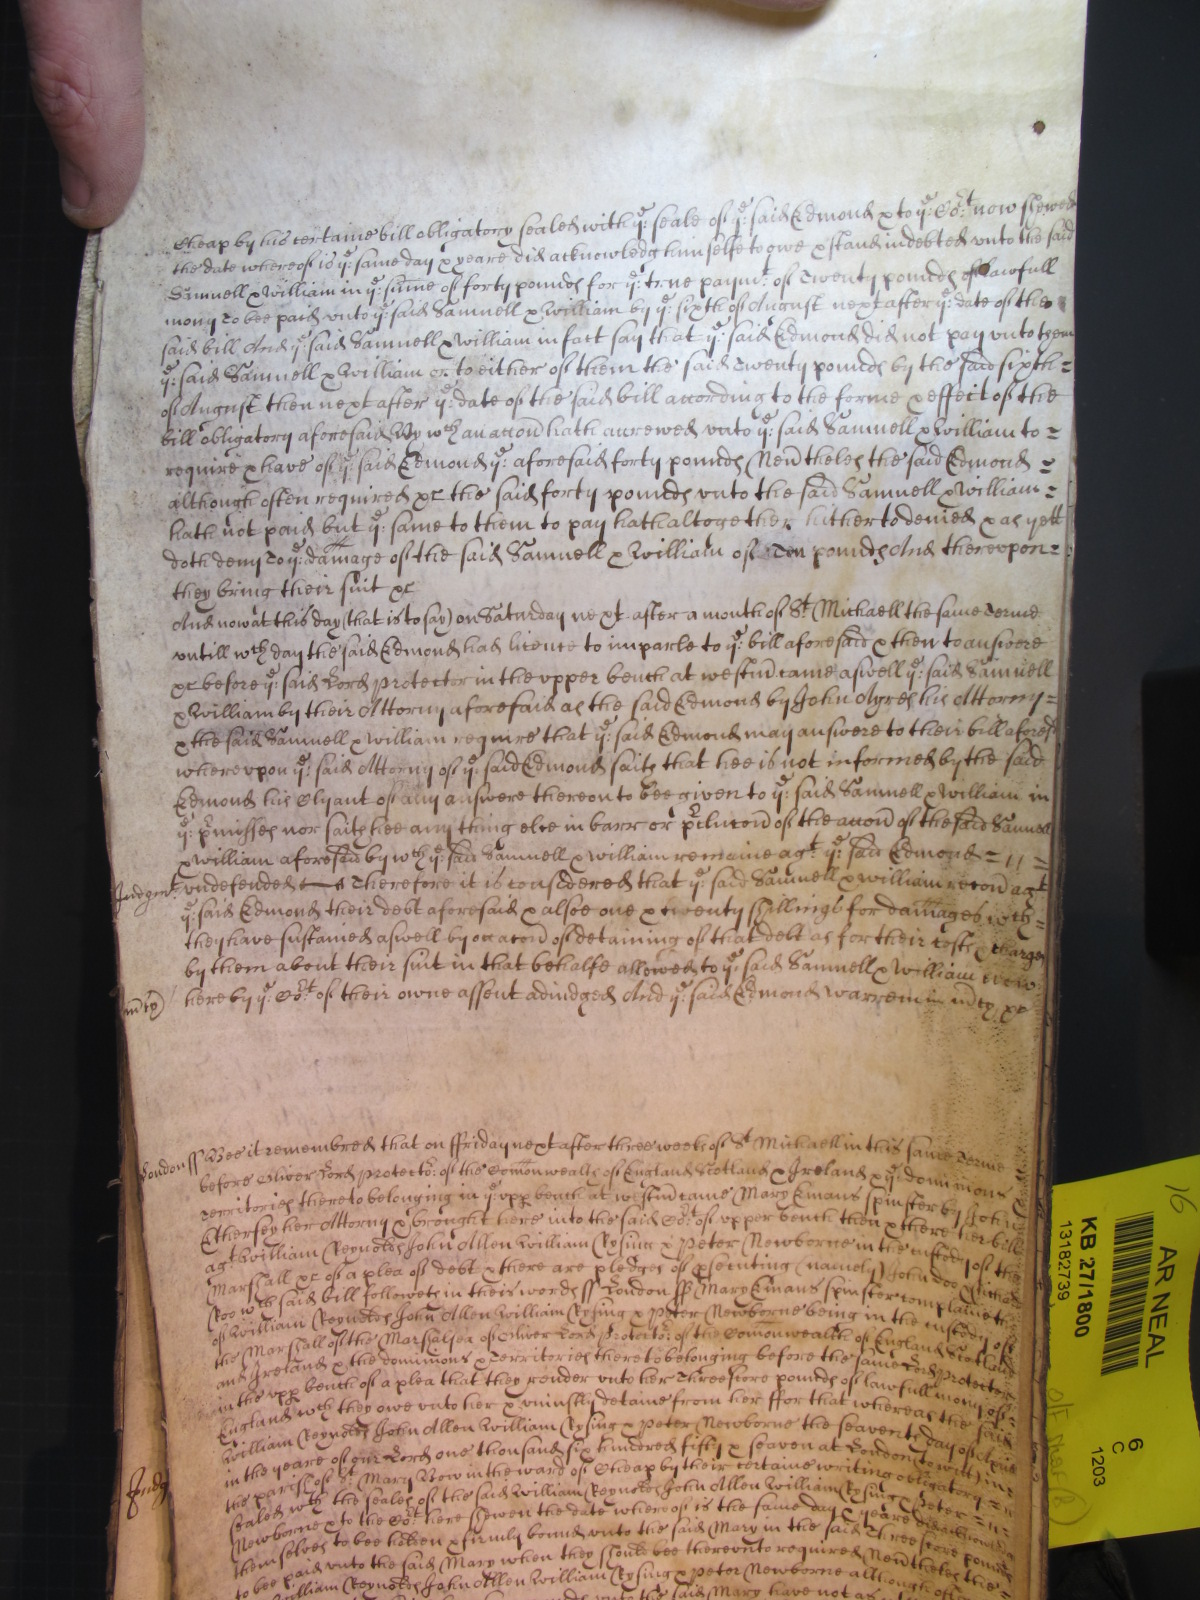 Cheap by his certaine bill obligatory sealed with ye: seale of ye: said Edmond & to ye: Cort: now shewed
the date whereof is ye: same day & yeare did acknowledg himselfe to owe & stand indebted unto the said
Samuell & William in ye: sume of forty pounds for ye: true paymt: of Twenty pounds of lawfull
mony to bee paid unto ye: said Samuell & William by ye: sixth of August next after ye: date of the
said bill And ye: said Samuell & William in fact say that ye: said Edmond did not pay unto them
ye: said Samuell & William or to either of them the said Twenty pounds by the said sixth =
of August then next after ye: date of the said bill according to the forme & effect of the
bill obligatory aforesaid By wch an accon hath accrewed unto ye: said Samuell & William to =
require & have of ye: said Edmond ye: aforesaid forty pounds Nevtheles the said Edmond =
although often required &c the said forty pounds unto the said Samuell & William =
hath not paid but ye: same to them to pay hath altogether hitherto denied & as yett
doth deny To ye: damage of the said Samuell & William of Ten pounds And thereupon =
they bring their suit &c
And now at this day (that is to say) on Saturday next after a month of St Michaell the same Terme
untill wch day the said Edmond had licence to imparle to ye: bill aforesaid & then to answere
&c before ye: said Lord Protector in the upper bench at westm came aswell ye: said Samuell
& William by their Attorny aforesaid as the said Edmond by John Ayres his Attorny =
& the said Samuell & William require that ye: said Edmond may answere to their bill aforesd
whereupon ye: said Attorny of ye: said Edmond saith that hee is not informed by the said
Edmond his Clyant of any answere thereon to bee given to ye: said Samuell & William in
ye: pmisses nor saith hee any thing else in barr or pclucon of the accon of the said Samuell
& William aforesaid by wch ye: said Samuell & William remaine agt ye: said Edmond = 11 =
Judgmt: undefended Therefore it is considered that ye: said Samuell & William recov agt
ye: said Edmond their debt aforesaid & alsoe one & twenty shillings for damages wch =
they have sustained aswell by occacon of detaining of that debt as for their costs & charges
by them about their suit in that behalfe allowed to ye: said Samuell & William
mcy hereby ye: Cort of their owne assent adiudged And ye: said Edmond Warren in mcy &c
London ss Bee it remembred that on ffriday next after three weeks of St Michaell in this same Terme
before Oliver Lord Protector: of the Comonwealth of England Scotland & Ireland & ye: dominions
Territories thereto belonging in ye: upp bench at westm came Mary Emans spinster by John
Ethersey her Attorny & brought here into the said Cort: of upper bench then & there her bill
agt William Reynolds John Allen William Rysing & Peter Newborne in the custody of the
Marshall &c of a plea of debt & there are pledges of psecuting (namely) John Doo & Richard
Roo wch said bill followeth in theis words ss London ss Mary Emans spinster complaineth
of William Reynolds John Allen William Rysing & Peter Newborne being in the custody of
the Marshall of the Marshalsea of Oliver Lord Protector: of the Comonwealth of England Scotland
and Ireland & the dominions & Territories thereto belonging before the same Lord Protector
in the upp bench of a plea that they render unto her Threescore pounds of lawfull mony of =
England wch they owe unto her & uniustly detaine from her ffor that whereas the said
William Reynolds John Allen William Rysing & Peter Newborne the seaventh day of
in the yeare of our Lord one thousand six hundred fifty & seaven at London (to witt) in =
the parish of St Mary Bow in the ward of Cheap by their certaine writing obligatory =
Judg sealed wth the seales of the said William Reynolds John Allen William Rysing & Peter =
Newborne & to the Cort: here shewen the date whereof is the same day & yeare
themselves to bee holden & firmly bound unto the said Mary in the said Threescore pounds
to bee paid unto the said Mary when they should bee thereunto required Nevtheles the =
William Reynolds John Allen William Rysing & Peter Newborne although often
unto the said Mary have not as
16
AR/NEAL
KB 27/1800
13182739
6
C
1203